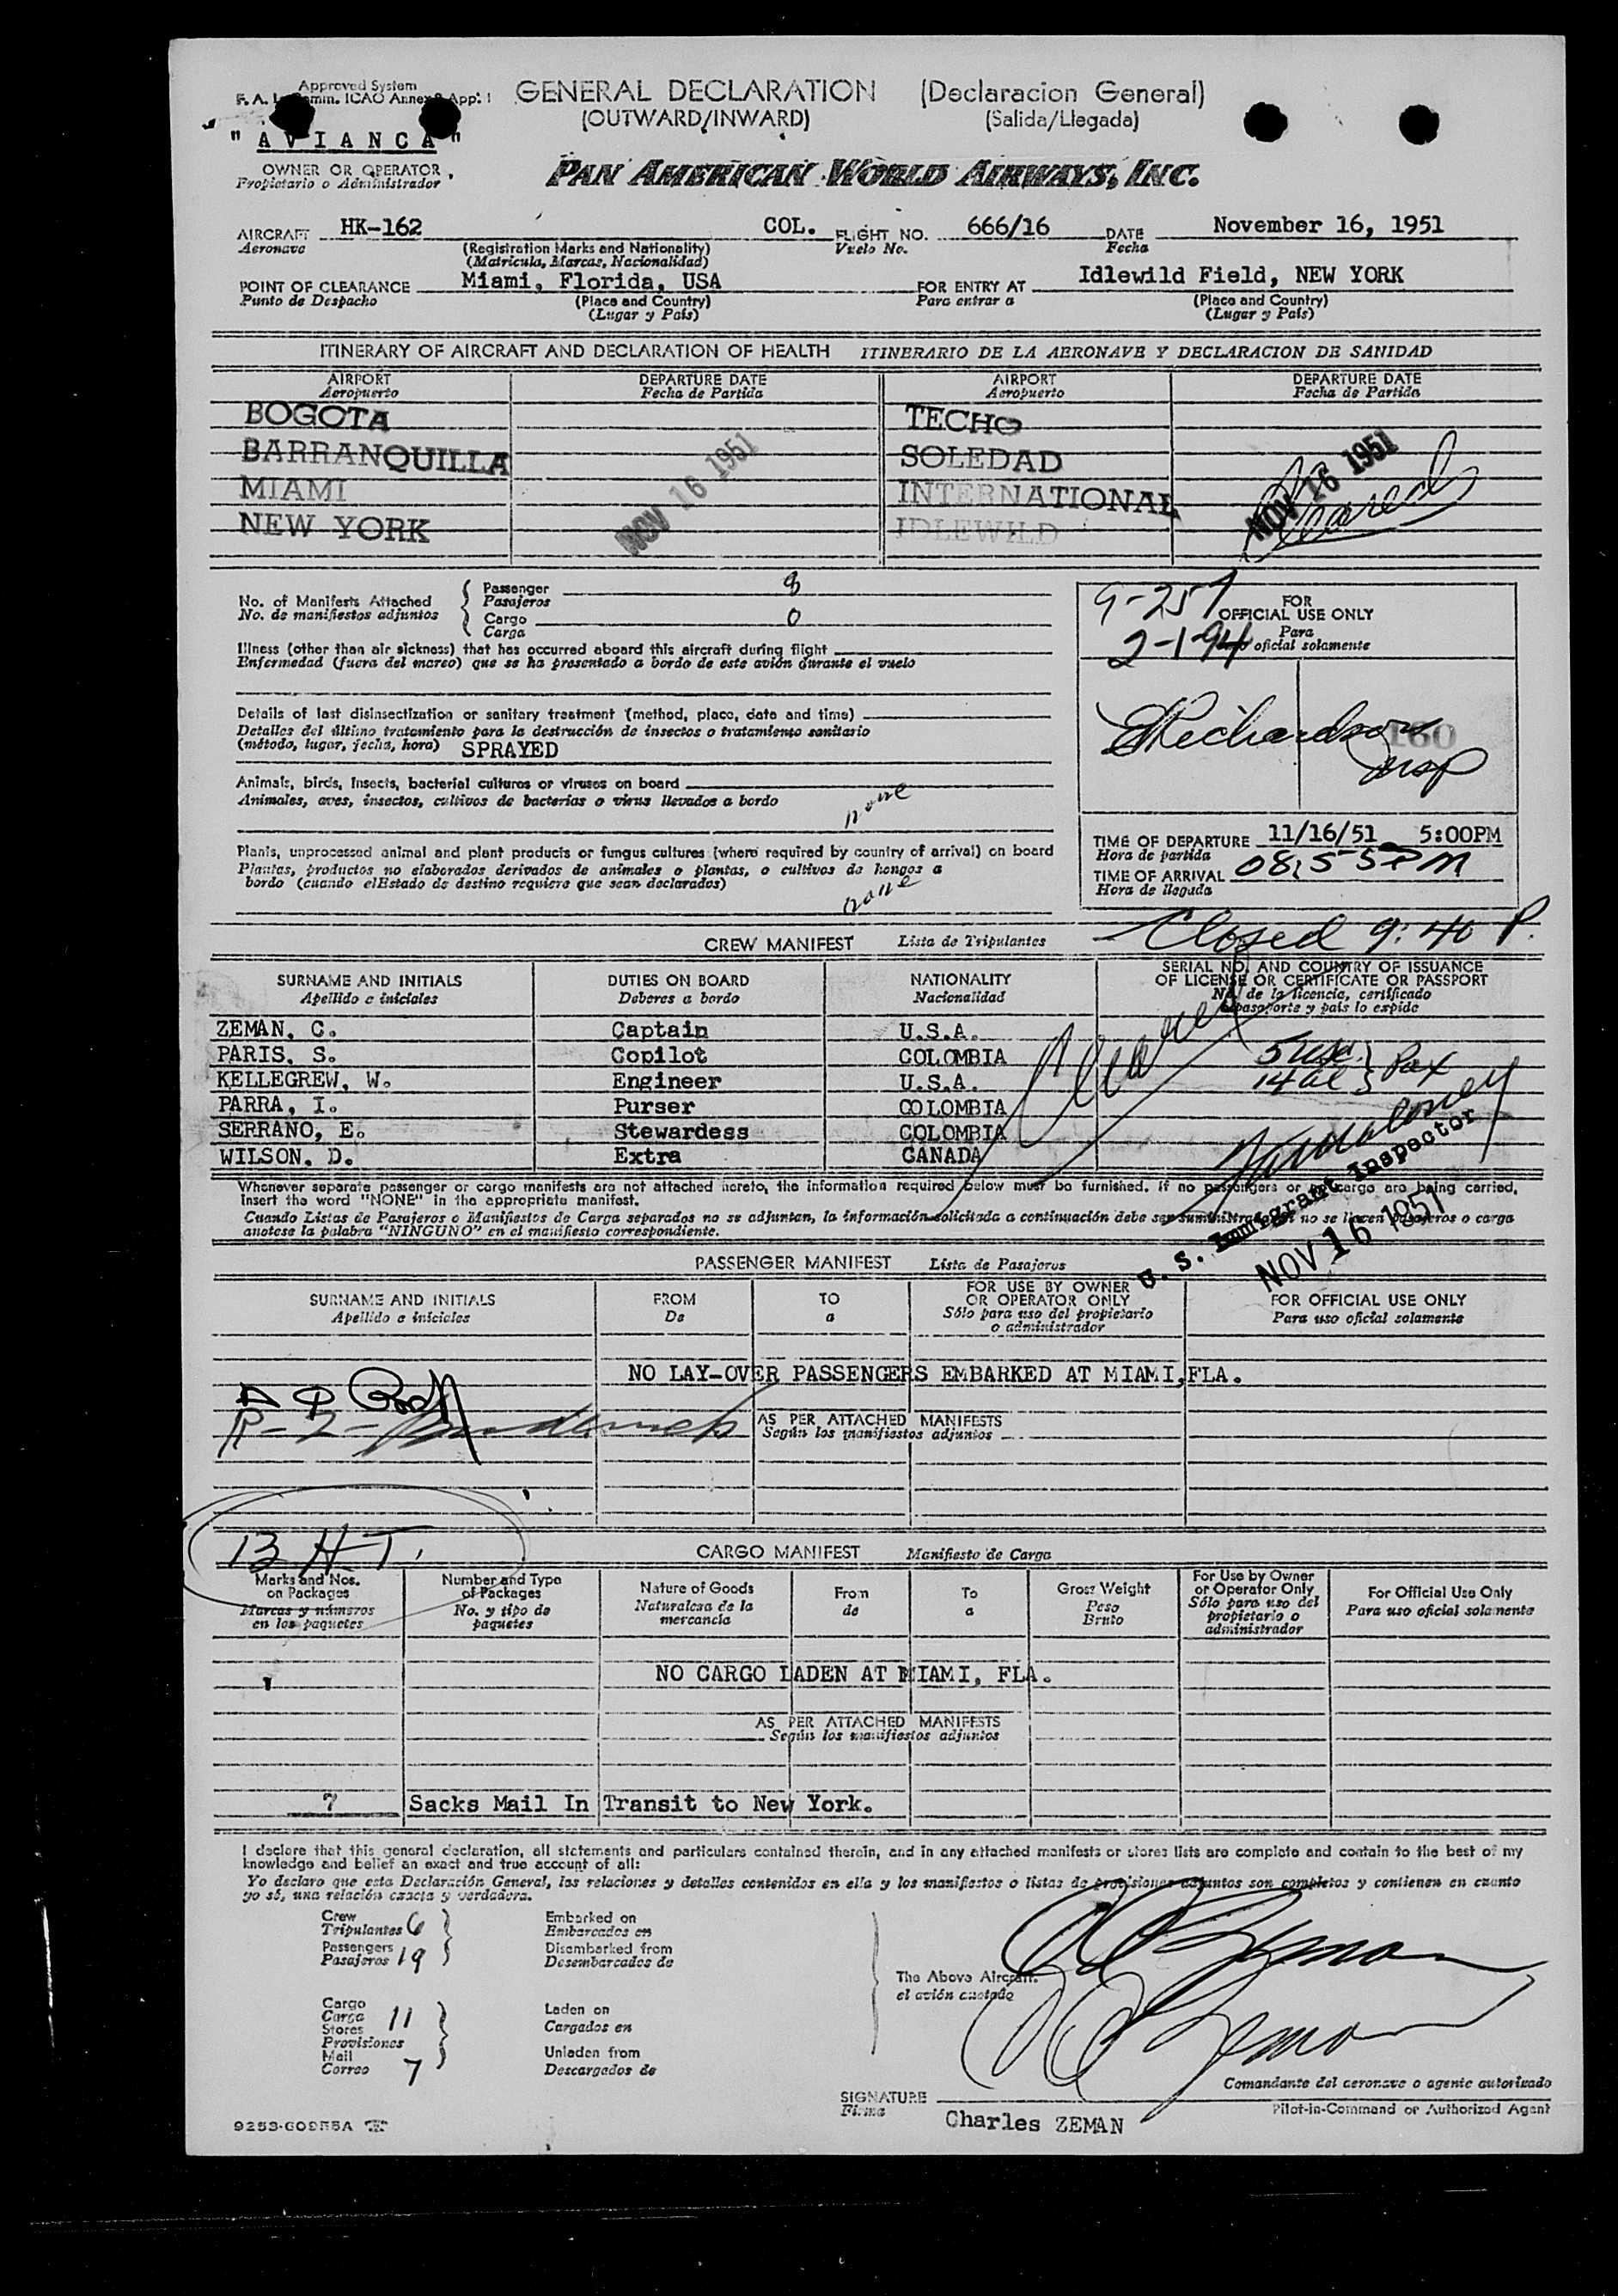 Approved System
GENERAL DECLARATION (Declaracion General)
(OUTWARD/INWARD) (Salida/Llegada)
"AVIANCA"
OWNER OR OPERATOR
Propietario o Administrador
PAN AMERICAN WORLD AIRWAYS, INC.
AIRCRAFT HK-162 COL. FLIGHT NO. 666/16 DATE November 16, 1951
Aeronave (Registration Marks and Nationality) Vuelo No. Fecha
(Matricula, Marcas, Nacionalidad)
POINT OF CLEARANCE Miami, Florida, USA FOR ENTRY AT Idlewild Field, NEW YORK
Punto de Despacho (Place and Country) Para entrar a (Place and Country)
(Lugar y País) (Lugar y País)
ITINERARY OF AIRCRAFT AND DECLARATION OF HEALTH ITINERARIO DE LA AERONAVE Y DECLARACION DE SANIDAD
AIRPORT DEPARTURE DATE AIRPORT DEPARTURE DATE
Aeropuerto Fecha de Partida Aeropuerto Fecha de Partida
BOGOTA TECHO
BARRANQUILLA SOLEDAD
MIAMI INTERNATIONAL
NEW YORK IDLEWILD
NOV 16 1951 NOV 16 1951
Cleared
No. of Manifests Attached Passenger 8
No. de manifiestos adjuntos Pasajeros
Cargo 0
Carga
9-257
2-1-94
FOR
OFFICIAL USE ONLY
Para
oficial solamente
Illness (other than air sickness) that has occurred aboard this aircraft during flight
Enfermedad (fuera del mareo) que se ha presentado a bordo de este avión durante el vuelo
Details of last disinsectization or sanitary treatment (method, place, date and time)
Detalles del último tratamiento para la destrucción de insectos o tratamiento sanitario
(método, lugar, fecha, hora) SPRAYED
E Richardson 160
Insp
Animals, birds, insects, bacterial cultures or viruses on board
Animales, aves, insectos, cultivos de bacterias o virus llevados a bordo none
Plants, unprocessed animal and plant products or fungus cultures (where required by country of arrival) on board
Plantas, productos no elaborados derivados de animales o plantas, o cultivos de hongos a
bordo (cuando elEstado de destino requiere que sean declarados) none
TIME OF DEPARTURE 11/16/51 5:00PM
Hora de partida
TIME OF ARRIVAL 08:55PM
Hora de llegada
Closed 9:40 P.
CREW MANIFEST Lista de Tripulantes
SURNAME AND INITIALS DUTIES ON BOARD NATIONALITY SERIAL NO. AND COUNTRY OF ISSUANCE
OF LICENSE OR CERTIFICATE OR PASSPORT
Apellido e iniciales Deberes a bordo Nacionalidad No. de la licencia, certificado
pasaporte y país lo expide
ZEMAN, C. Captain U.S.A.
PARIS, S. Copilot COLOMBIA
KELLEGREW, W. Engineer U.S.A.
PARRA, I. Purser COLOMBIA
SERRANO, E. Stewardess COLOMBIA
WILSON, D. Extra CANADA
5 USC
14 al } Pax
U. S. Immigrant Inspector
NOV 16 1951
Whenever separate passenger or cargo manifests are not attached hereto, the information required below must be furnished. If no passengers or no cargo are being carried,
insert the word "NONE" in the appropriate manifest.
Cuando Listas de Pasajeros o Manifiestos de Carga separados no se adjuntan, la información solicitada a continuación debe ser suministrada no se llecen pasajeros o carga
anotese la palabra "NINGUNO" en el manifiesto correspondiente.
PASSENGER MANIFEST Lista de Pasajeros
SURNAME AND INITIALS FROM TO FOR USE BY OWNER
OR OPERATOR ONLY FOR OFFICIAL USE ONLY
Apellido e iniciales De a Sólo para uso del propietario
o administrador Para uso oficial solamente
NO LAY-OVER PASSENGERS EMBARKED AT MIAMI,FLA.
AS PER ATTACHED MANIFESTS
Según los manifiestos adjuntos
13 HT.
CARGO MANIFEST Manifiesto de Carga
Marks and Nos.
on Packages
Marcas y números
en los paquetes
Number and Type
of Packages
No. y tipo de
paquetes
Nature of Goods
Naturaleza de la
mercancia
From
de
To
a
Gross Weight
Peso
Bruto
For Use by Owner
or Operator Only
Sólo para uso del
propietario o
administrador
For Official Use Only
Para uso oficial solamente
NO CARGO LADEN AT MIAMI, FLA.
AS PER ATTACHED MANIFESTS
Según los manifiestos adjuntos
7 Sacks Mail In Transit to New York.
I declare that this general declaration, all statements and particulars contained therein, and in any attached manifests or stores lists are complete and contain to the best of my
knowledge and belief an exact and true account of all:
Yo declaro que esta Declaración General, las relaciones y detalles contenidos en ella y los manifiestos o listas de provisiones adjuntos son completos y contienen en cuanto
yo sé, una relación exacta y verdadera.
Crew
Tripulantes 6
Passengers
Pasajeros 19
Embarked on
Embarcados en
Disembarked from
Desembarcados de
Cargo
Carga 11
Stores
Provisiones
Mail
Correo 7
Laden on
Cargados en
Unladen from
Descargados de
The Above Aircraft
el avión
C Zeman
C Zeman
Comandante del aeronave o agente autorizado
SIGNATURE
Firma Pilot-in-Command or Authorized Agent
Charles ZEMAN